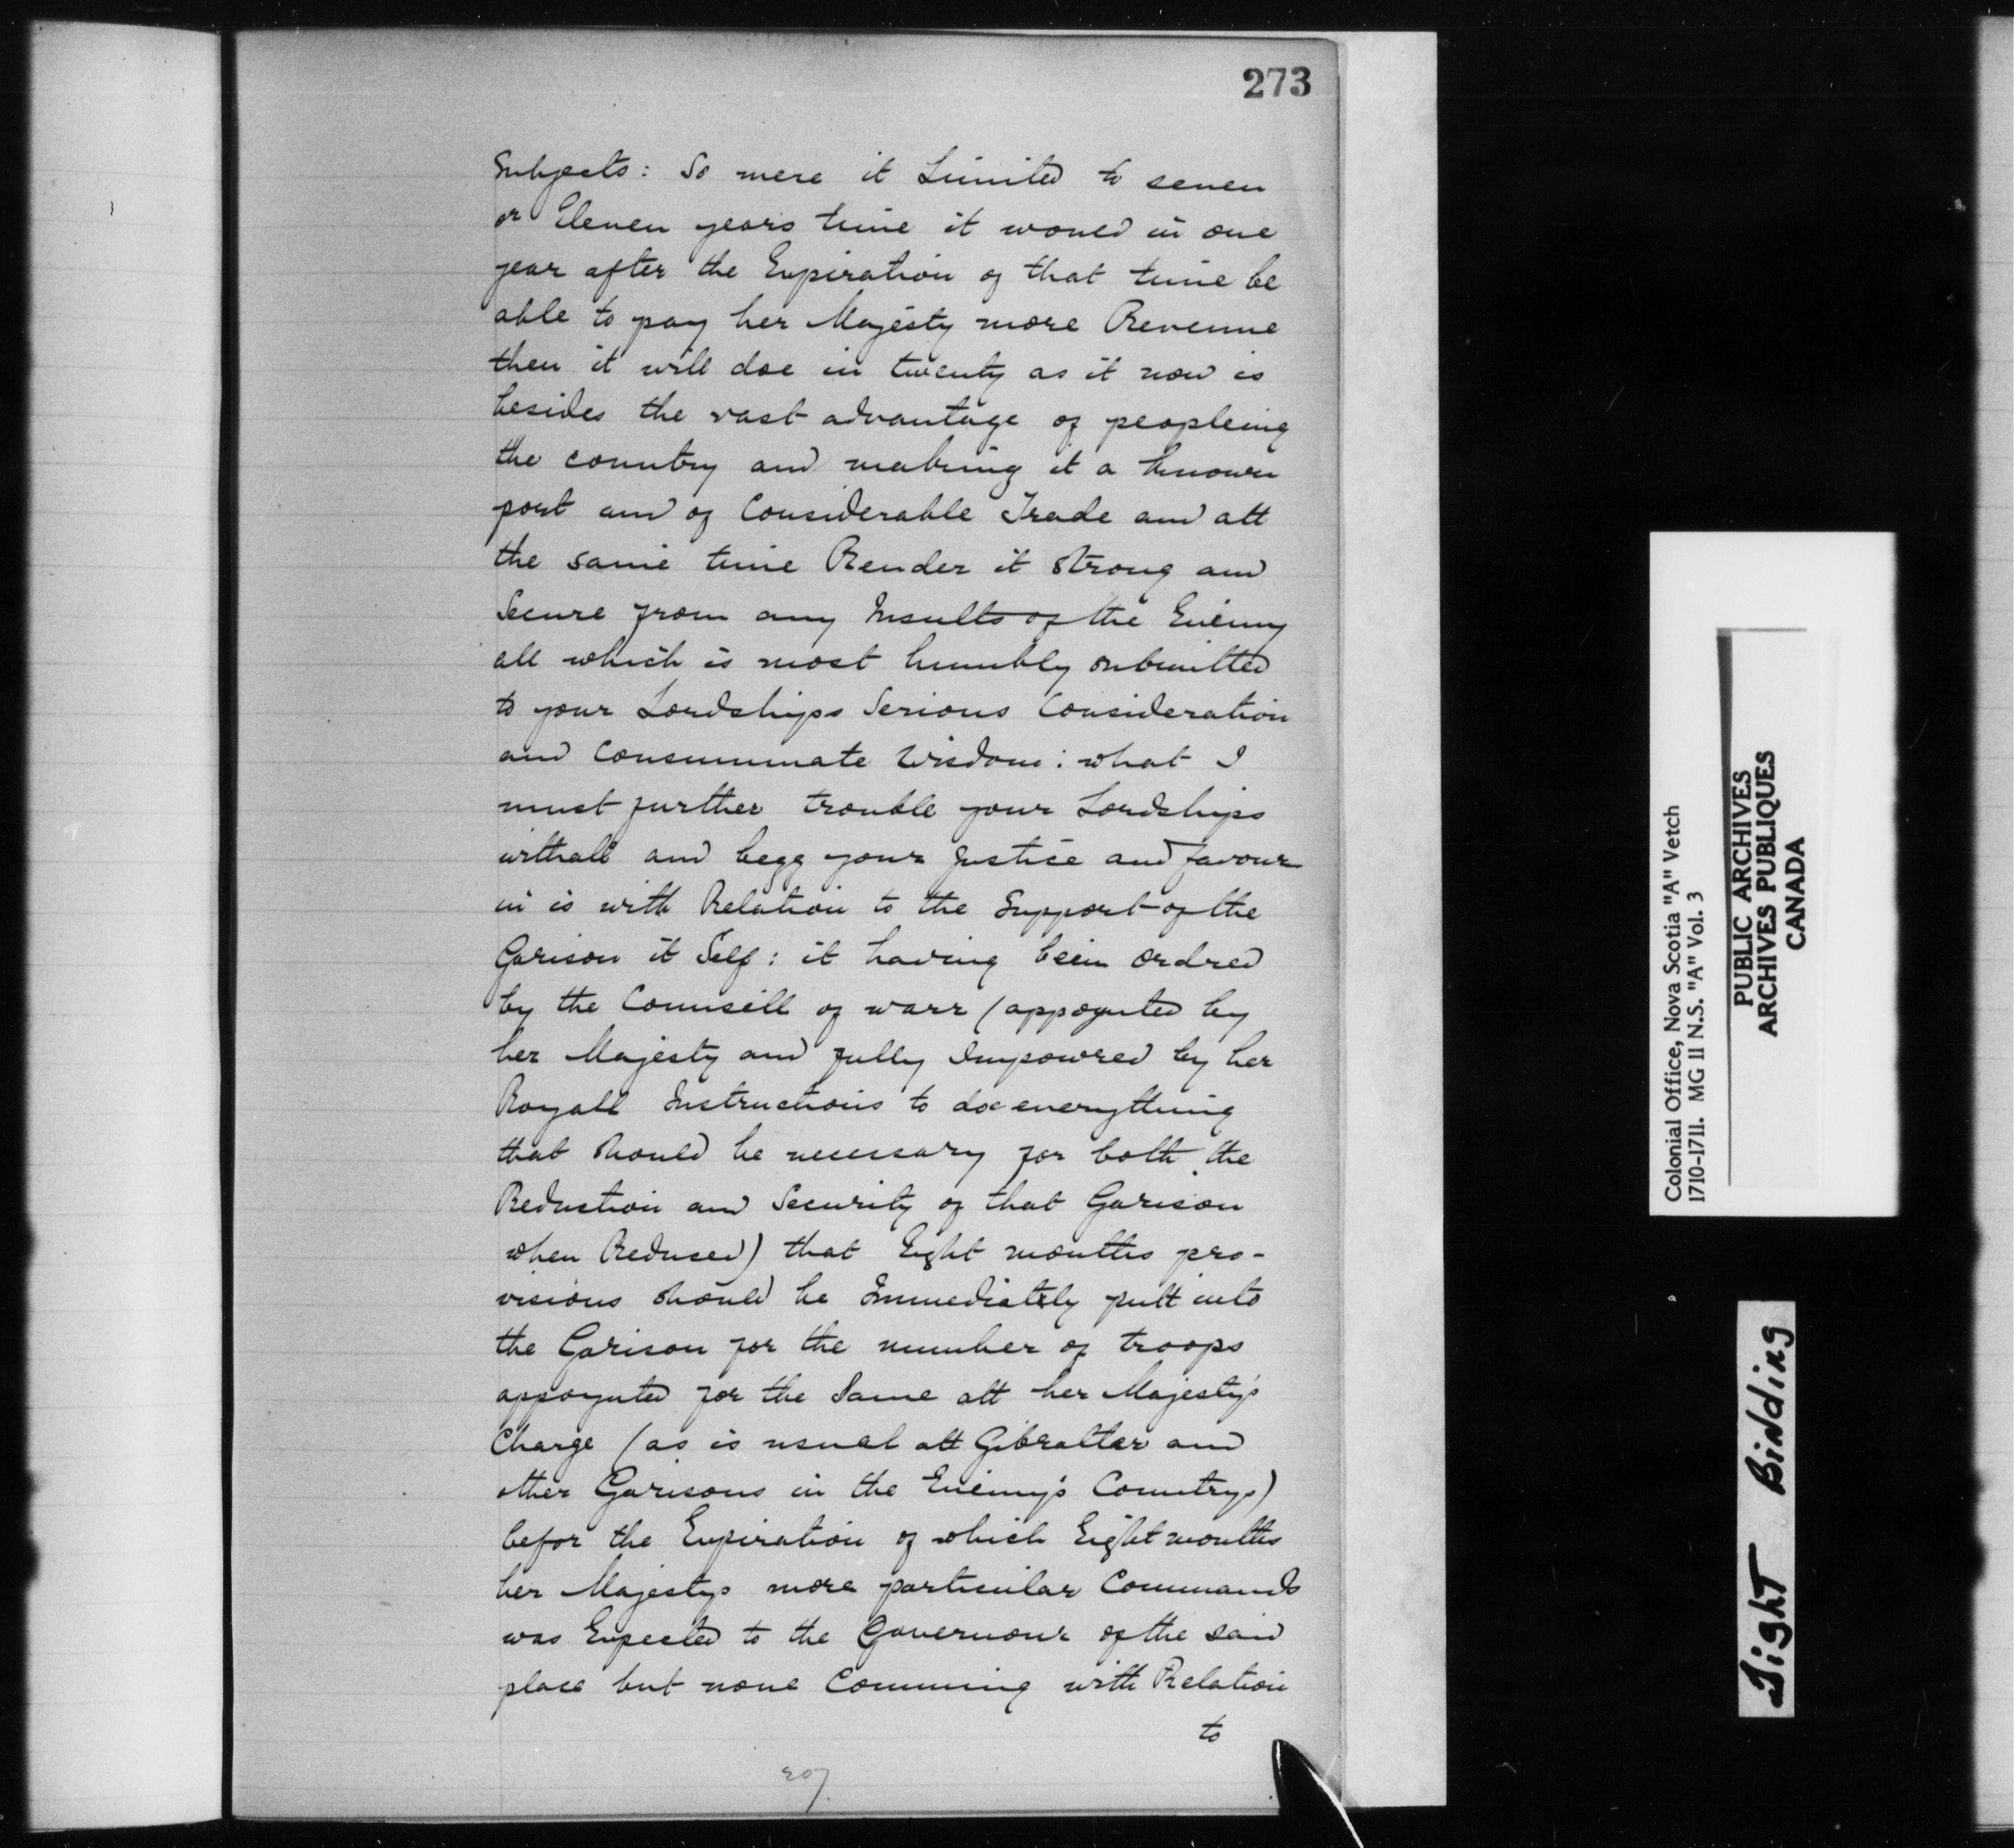 273
Subjects: So were it Limited to seven
or Eleven years time it would in one
year after the Expiration of that time be
able to pay her Majesty more Revenue
then it will doe in twenty as it now is
besides the vast advantage of peopleing
the country and making it a known
port and of Considerable Trade and att
the same time Render it strong and
Secure from any Insults of the Enimy
all which is most humbly submitted
to your Lordships Serious Consideration
and Consummate Wisdom: what I
must further trouble your Lordships
withall and begg your Justice and favour
in is with Relation to the Support of the
Garison it Self: it having been ordred
by the Counsell of warr (appoynted by
her Majesty and fully Impowred by her
Royall Instructions to doe everything
that should be necessary for both the
Reduction and Security of that Garison
when Reduced) that Eight months pro-
visions should be Immediatly putt into
the Garison for the number of troops
appoynted for the Same att her Majesty's
Charge (as is usual att Gibralter and
other Garisons in the Enimy's Countrys)
befor the Expiration of which Eight months
her Majestys more particular Commands
was Expected to the Governour of the said
place but none Comming with Relation
to
207
Colonial Office, Nova Scotia "A" Vetch
1710-1711. MG 11 N.S. "A" Vol. 3
PUBLIC ARCHIVES
ARCHIVES PUBLIQUES
CANADA
Tight Binding